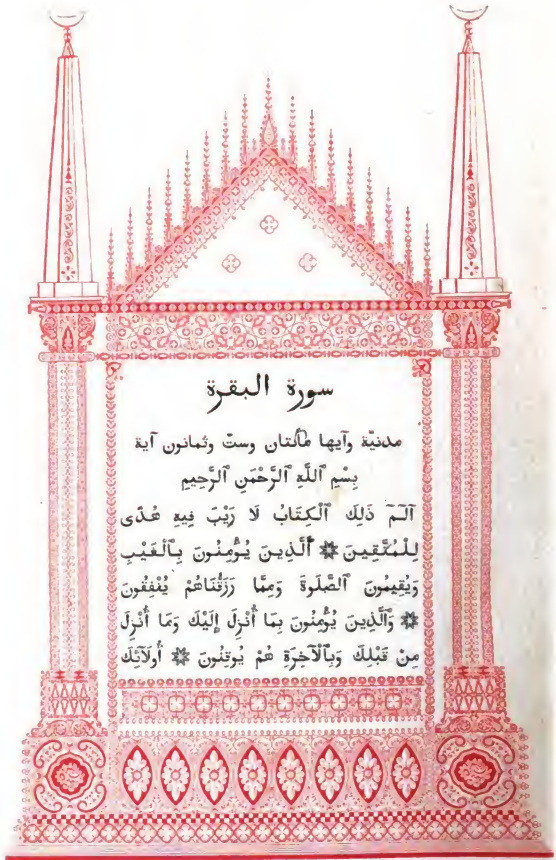 سورة البقرة
مدنيّة وآيها مآئتان وستّ وثمانون آية
بِسْمِ ٱللَّهِ ٱلرَّحْمَنِ ٱلرَّحِيمِ
آلـمٓ ذَلِكَ ٱلْكِتَابُ لَا رَيْبَ فِيهِ هُدًى
لِلْمُتَّقِينَ ۞ ٱلَّذِينَ يُؤْمِنُونَ بِٱلْغَيْبِ
وَيُقِيمُونَ ٱلصَّلَوةَ وَمِمَّا رَزَقْنَاهُمْ يُنْفِقُونَ
۞ وَٱلَّذِينَ يُؤْمِنُونَ بِمَا أُنْزِلَ إِلَيْكَ وَمَا أُنْزِلَ
مِنْ قَبْلِكَ وَبِٱلْآخِرَةِ هُمْ يُوقِنُونَ ۞ أُولَآئِكَ